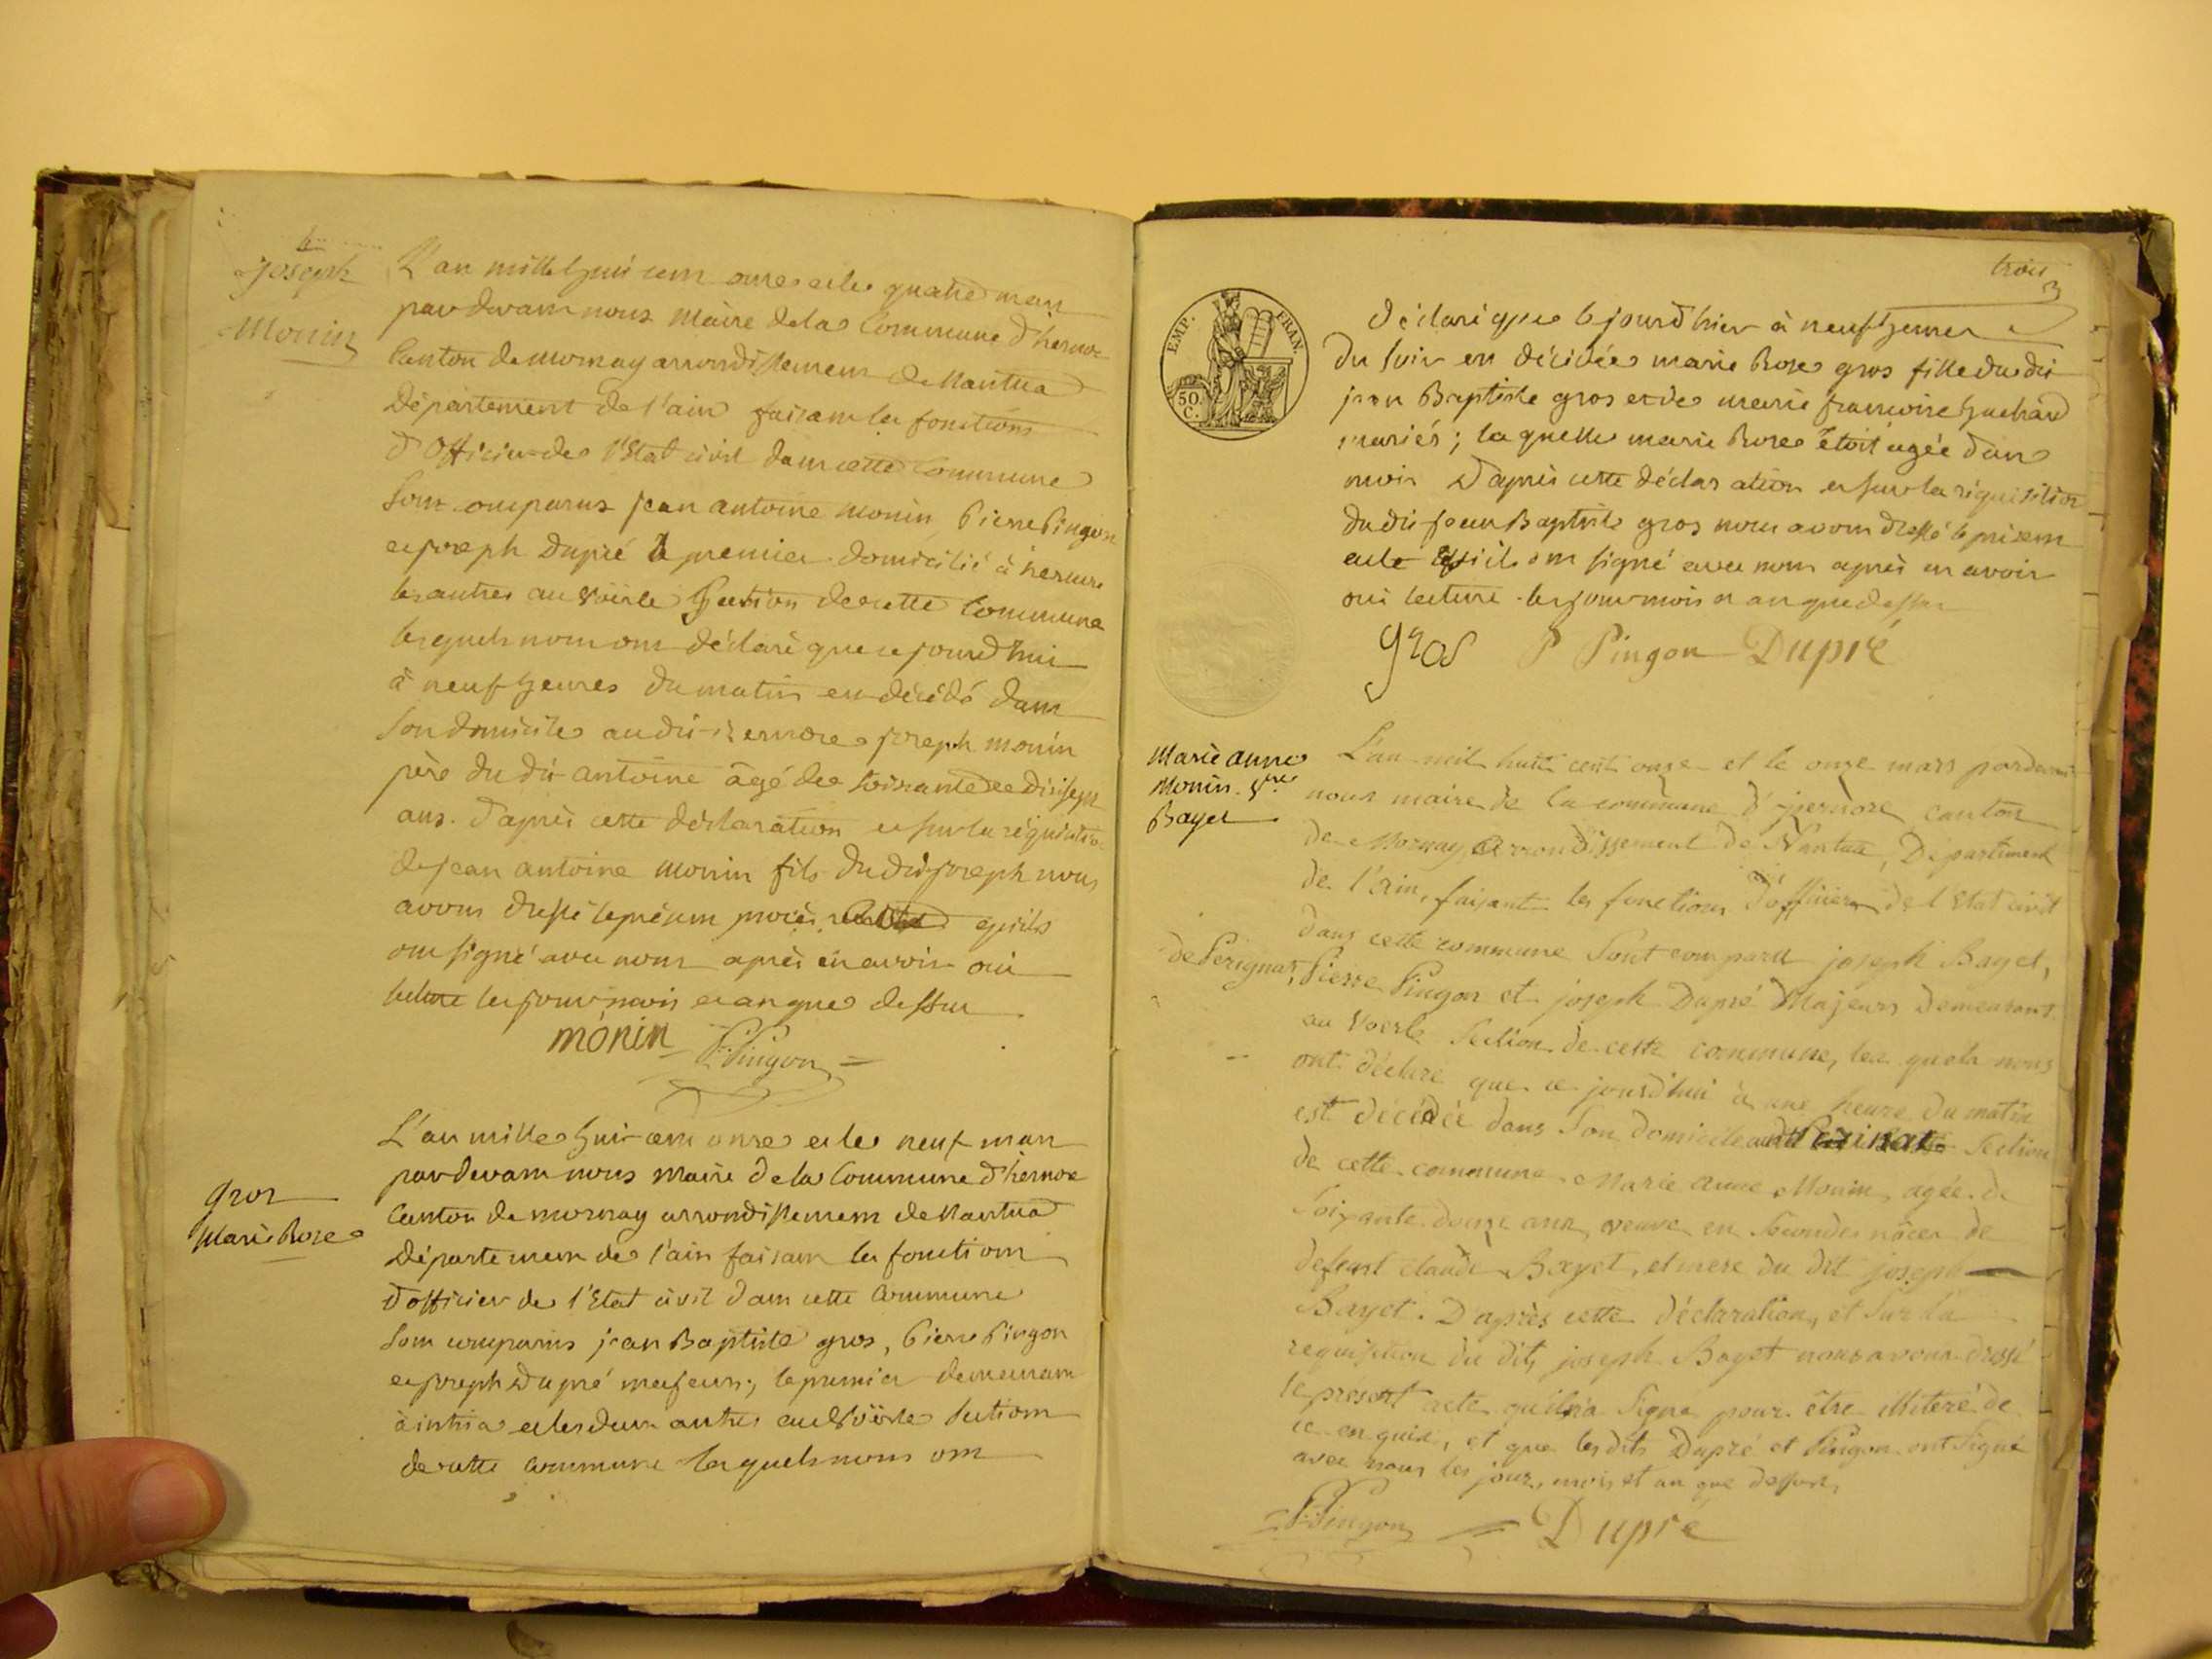 Joseph
Monin
L'an mille huit cent onze et le quatre mars
pardevant nous maire de la Commune d'hernore
Canton de mornay arrondissement de Nantua
Département de l'ain faisant les fonctions
d'Officier de l'Etat civil dans cette Commune
Sont comparus jean antoine monin, Pierre Pingon
et joseph Dupré le premier domicilié à hernore
les autres au Voërle Section de cette Commune
lesquels nous ont déclaré que ce jourd'hui
à neuf heures du matin est décédé dans
son domicile au dit hernore joseph monin
père du dit antoine âgé de soixante et dix sept
ans. d'après cette déclaration et sur la réquisition
de jean antoine monin fils du dit joseph nous
avons dressé le présent procès verbal qu'ils
ont signé avec nous après en avoir oui
lecture les jour mois et an que dessus
monin P. Pingon
gros
Marie Rose
L'an mille huit cent onze et le neuf mars
pardevant nous Maire de la Commune d'hernore
Canton de mornay arrondissement de Nantua
Département de l'ain faisant les fonctions
d'officier de l'Etat civil dans cette Commune
Sont comparus jean Baptiste gros, Pierre Pingon
et joseph Dupré majeurs, le premier demeurant
à intria et les deux autres au Voërle Section
de cette Commune lesquels nous ont
trois
3
EMP. FRAN.
50
C.
déclaré que le jourd'hier à neuf heures
du soir est décédée marie Rose gros fille du dit
jean Baptiste gros et de marie francoise huchard
mariés; laquelle marie Rose étoit agée d'un
mois D'après cette déclaration et sur la réquisition
du dit jean Baptiste gros nous avons dressé le présent
acte qu'ils ont signé avec nous après en avoir
oui lecture les jour mois et an que dessus
gros P Pingon Dupré
Marie anne
Monin Vve
Bayet
L'an mil huit cent onze et le onze mars pardevant
nous maire de la commune d'jzernore canton
de Mornay Arrondissement de Nantua, Département
de l'Ain, faisant les fonctions d'officier de l'Etat civil
dans cette commune Sont comparu joseph Bayet,
de Pérignat, Pierre Pingon et joseph Dupré Majeurs demeurant
au Voerle Section de cette commune, les quels nous
ont déclaré que ce jourd'hui à une heure du matin
est décédée dans Son domicile audit Perignat Section
de cette commune Marie Anne Monin, agée de
Soixante douze ans, veuve en Secondes nôces de
defunt claude Bayet, et mere du dit joseph
Bayet. D'après cette déclaration, et Sur la
requisition du dit joseph Bayet nous avons dressé
le présent acte qu'il n'a Signé pour être illiteré de
ce enquis, et que les dits Dupré et Pingon ont Signé
avec nous les jour, mois et an que dessus,
P. Pingon Dupré